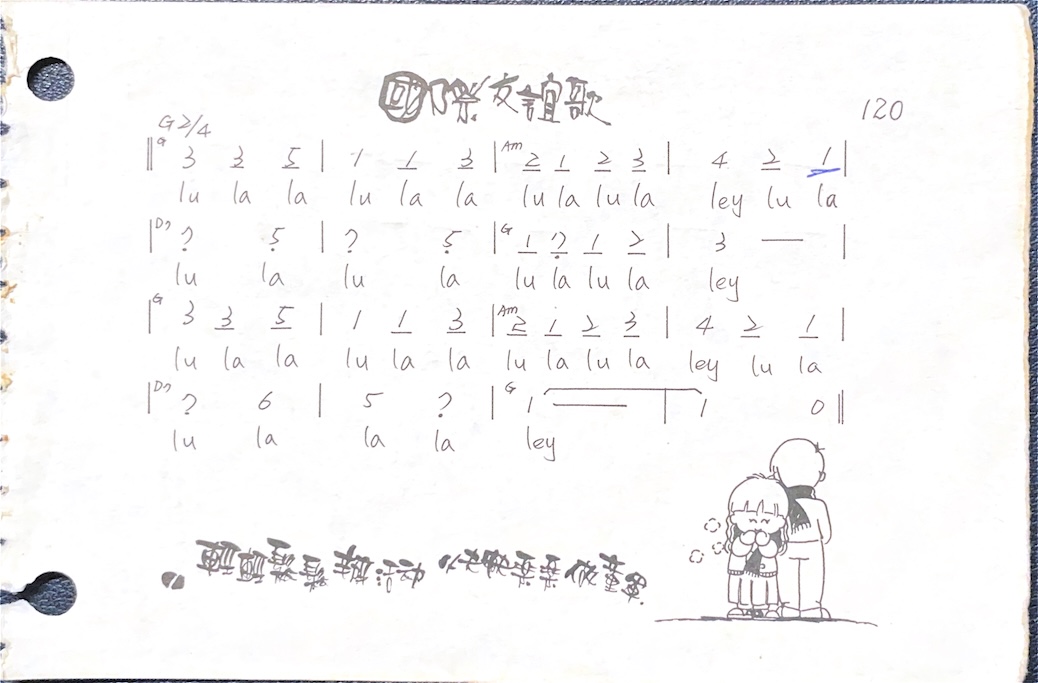 國際友誼歌
120
G 2/4
‖G 3 3 5 | 1 1 3 |Am 2 1 2 3 | 4 2 1 |
lu la la lu la la lu la lu la ley lu la
|D7 7 5 | 7 5 |G 1 7 1 2 | 3 — |
lu la lu la lu la lu la ley
|G 3 3 5 | 1 1 3 |Am 2 1 2 3 | 4 2 1 |
lu la la lu la la lu la lu la ley lu la
|D7 7 6 | 5 7 |G 1 — | 1 0 ‖
lu la la la ley
輕輕鬆鬆辦活动 快快樂樂做董軍